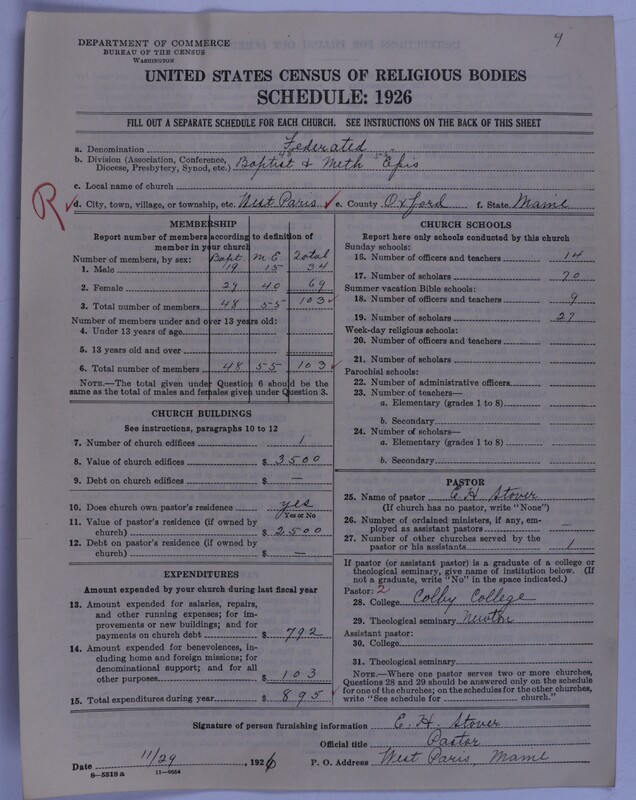 9
DEPARTMENT OF COMMERCE
BUREAU OF THE CENSUS
WASHINGTON
UNITED STATES CENSUS OF RELIGIOUS BODIES
SCHEDULE: 1926
FILL OUT A SEPARATE SCHEDULE FOR EACH CHURCH. SEE INSTRUCTIONS ON THE BACK OF THIS SHEET
a. Denomination Federated
b. Division (Association, Conference, Diocese, Presbytery, Synod, etc.) Baptist & Meth Epis
c. Local name of church
R
d. City, town, village, or township, etc. West Paris e. County Oxford f. State Maine
MEMBERSHIP
Report number of members according to definition of
member in your church
Number of members, by sex: Bapt. M E Total
1. Male 19 15 34
2. Female 29 40 69
3. Total number of members 48 55 103
Number of members under and over 13 years old:
4. Under 13 years of age
5. 13 years old and over
6. Total number of members 48 55 103
NOTE.—The total given under Question 6 should be the
same as the total of males and females given under Question 3.
CHURCH BUILDINGS
See instructions, paragraphs 10 to 12
7. Number of church edifices 1
8. Value of church edifices $ 3500
9. Debt on church edifices $ —
10. Does church own pastor's residence yes
Yes or No
11. Value of pastor's residence (if owned by
church) $ 2500
12. Debt on pastor's residence (if owned by
church) $ —
EXPENDITURES
Amount expended by your church during last fiscal year
13. Amount expended for salaries, repairs,
and other running expenses; for im-
provements or new buildings; and for
payments on church debt $ 792
14. Amount expended for benevolences, in-
cluding home and foreign missions; for
denominational support; and for all
other purposes $ 103
15. Total expenditures during year $ 895
CHURCH SCHOOLS
Report here only schools conducted by this church
Sunday schools:
16. Number of officers and teachers 14
17. Number of scholars 70
Summer vacation Bible schools:
18. Number of officers and teachers 9
19. Number of scholars 27
Week-day religious schools:
20. Number of officers and teachers
21. Number of scholars
Parochial schools:
22. Number of administrative officers
23. Number of teachers—
a. Elementary (grades 1 to 8)
b. Secondary
24. Number of scholars—
a. Elementary (grades 1 to 8)
b. Secondary
PASTOR
25. Name of pastor E. H. Stover
(If church has no pastor, write "None")
26. Number of ordained ministers, if any, em-
ployed as assistant pastors —
27. Number of other churches served by the
pastor or his assistants 1
If pastor (or assistant pastor) is a graduate of a college or
theological seminary, give name of institution below. (If
not a graduate, write "No" in the space indicated.)
Pastor: 2
28. College Colby College
29. Theological seminary Newton
Assistant pastor:
30. College
31. Theological seminary
NOTE.—Where one pastor serves two or more churches,
Questions 28 and 29 should be answered only on the schedule
for one of the churches; on the schedules for the other churches,
write "See schedule for church."
Signature of person furnishing information E. H. Stover
Official title Pastor
Date 11/29, 1926 P. O. Address West Paris, Maine
8—5818a 11—9554